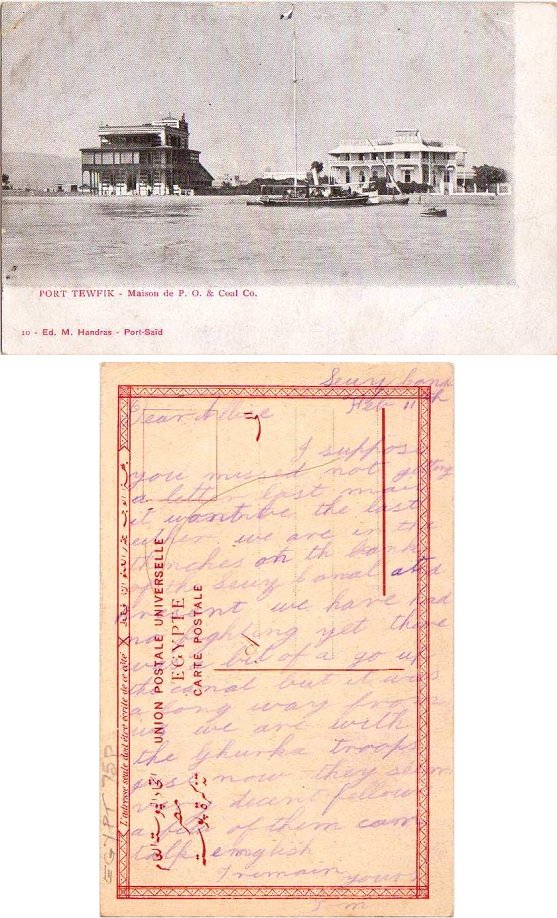 PORT TEWFIK - Maison de P. O. & Coal Co.
10 - Ed. M. Handras - Port-Saïd
Seuy Canal
Feb 11th
Dear Allice
I suppose
you missed not getting
a letter last mail
it want be the last
either we are in the
trenches on th bank
of th Seuy Canal at
present we have had
no fighting yet there
was a bit of a go up
the canal but it was
a long way from
us we are with
the Ghurka troops
just now they seem
very decent fellow
a bits of them can
talk emglish
I remain
yours
UNION POSTALE UNIVERSELLE
EGYPTE
CARTE POSTALE
L'adresse seule doit être écrite de ce côté
مصر
EGYPT 75P